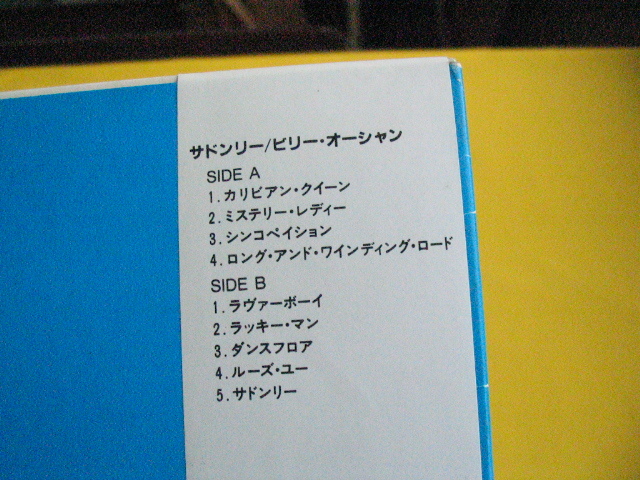 サドンリー/ビリー・オーシャン
SIDE A
1.カリビアン・クイーン
2.ミステリー・レディー
3.シンコペイション
4.ロング・アンド・ワインディング・ロード
SIDE B
1.ラヴァーボーイ
2.ラッキー・マン
3.ダンスフロア
4.ルーズ・ユー
5.サドンリー